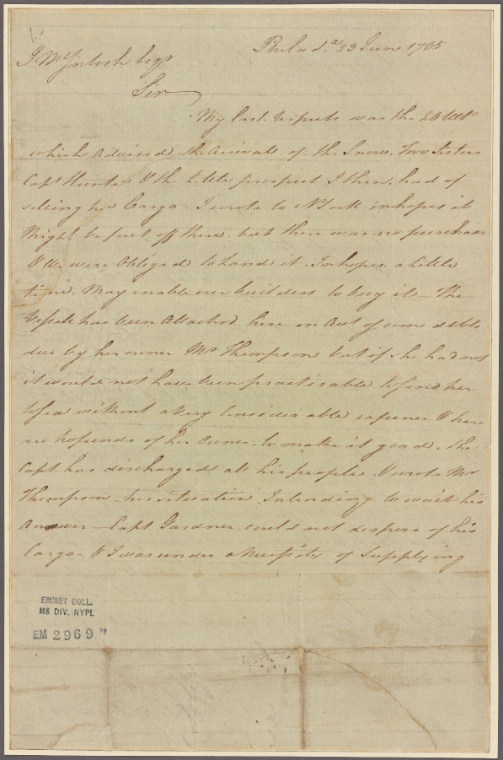 Philad.ª 23 June 1765
J. McIntosh Esqr
Sir
My last respects was the 26 Ulto
which Advised the Arrival of the Snow Two Sisters
Capt Hunter & the little prospect I then had of
selling her Cargo I wrote to N York in hopes it
Might be put off there but there was no purchaser
& We were Obliged to Land it In hopes a little
time May enable our builders to buy it - The
Vessel has been Attached here on Acct of some debts
due by her owner Mr Thompson but if she had not
it would not have been practicable to send her
to Sea without a Very Considerable expence & there
no funds of her Owner to make it good. The
Capt has discharged all his people & wrote Mr
Thompson his situation Intending to wait his
Answer - Capt Gardner could not dispose of his
Cargo - & I was under a Necessity of Supplying
EMMET COLL.
MS DIV. NYPL
EM 2969